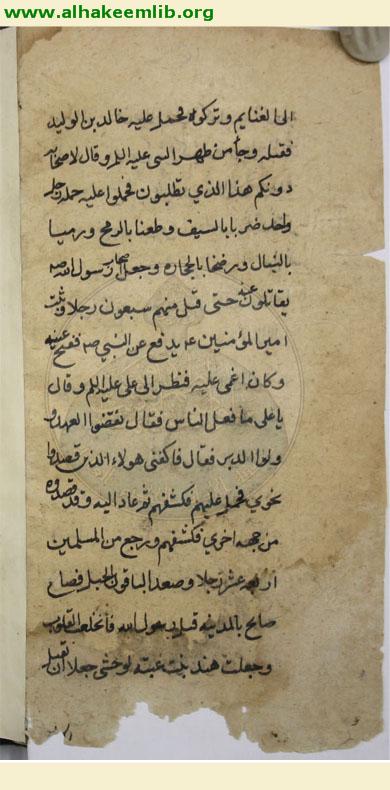 www.alhakeemlib.org
الى الغنايم وتركوه فحمل عليه خالد بن الوليد
فقتله وجأ من ظهر النبى عليه السلم وقال لاصحابه
دونكم هذا الذي تطلبون فحملوا عليه حملة رجل
واحد ضربا بالسيف وطعنا بالرمح ورميا
بالنبال ورضخا بالحجاره وجعل اصحاب رسول الله صه
يقاتلون عنه حتى قتل منهم سبعون رجلا وثبت
امير المؤمنين عه يدفع عن النبي صه ففتح عينيه
وكان اغمى عليه فنظر الى على عليه السلم وقال
يا على ما فعل الناس فقال نقضوا العهد و
ولوا الدبر فقال فاكفنى هولاء الذين قصدوا
نحوي فحمل عليهم فكشفهم ثم عاد اليه وقد قصدوه
من جهه اخري فكشفهم ورجع من المسلمين
اربعه عشر رجلا وصعد الباقون الجبل فصاح
صايح بالمدينه قتل رسول الله فانخلعت القلوب
وجعلت هند بنت عتبه لوحشى جعلا ان تقتل